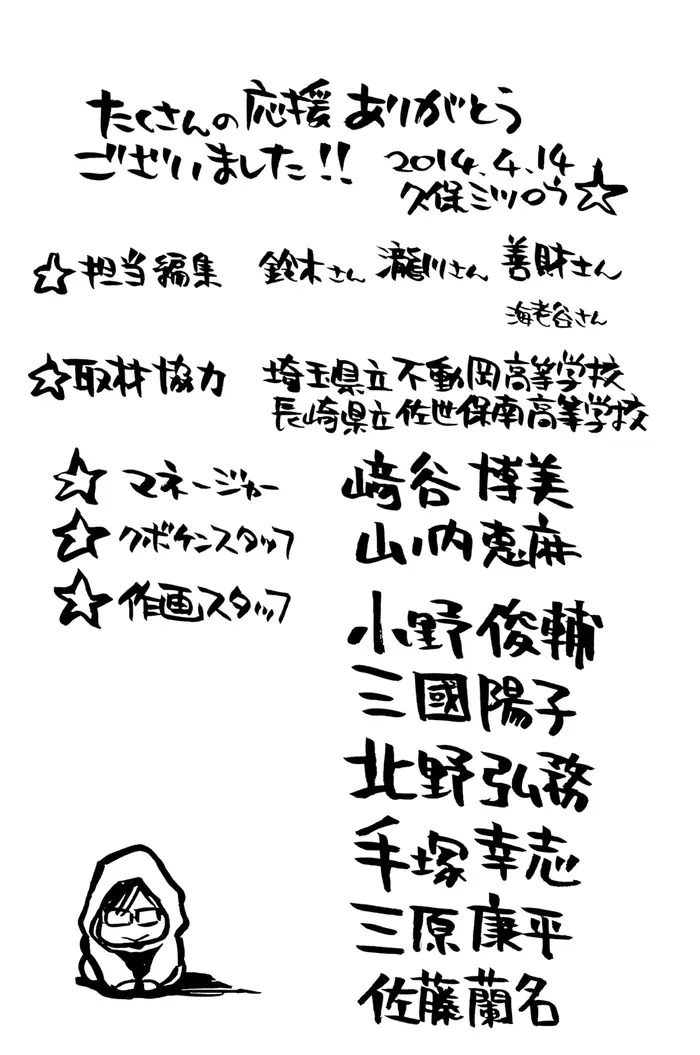 たくさんの応援ありがとう
ございました!!
2014.4.14
久保ミツロウ☆
☆担当編集 鈴木さん 瀧川さん 善財さん
海老谷さん
☆取材協力 埼玉県立不動岡高等学校
長崎県立佐世保南高等学校
☆マネージャー 﨑谷博美
☆クボケンスタッフ 山ノ内恵麻
☆作画スタッフ 小野俊輔
三國陽子
北野弘務
手塚幸志
三原康平
佐藤蘭名